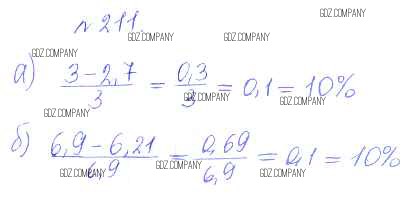 GDZ.COMPANY
№ 211.
GDZ.COMPANY GDZ.COMPANY
GDZ.COMPANY
а) (3 – 2,7)/3 = 0,3/3 = 0,1 = 10%
GDZ.COMPANY GDZ.COMPANY
GDZ.COMPANY
б) (6,9 – 6,21)/6,9 = 0,69/6,9 = 0,1 = 10%
GDZ.COMPANY GDZ.COMPANY GDZ.COMPANY